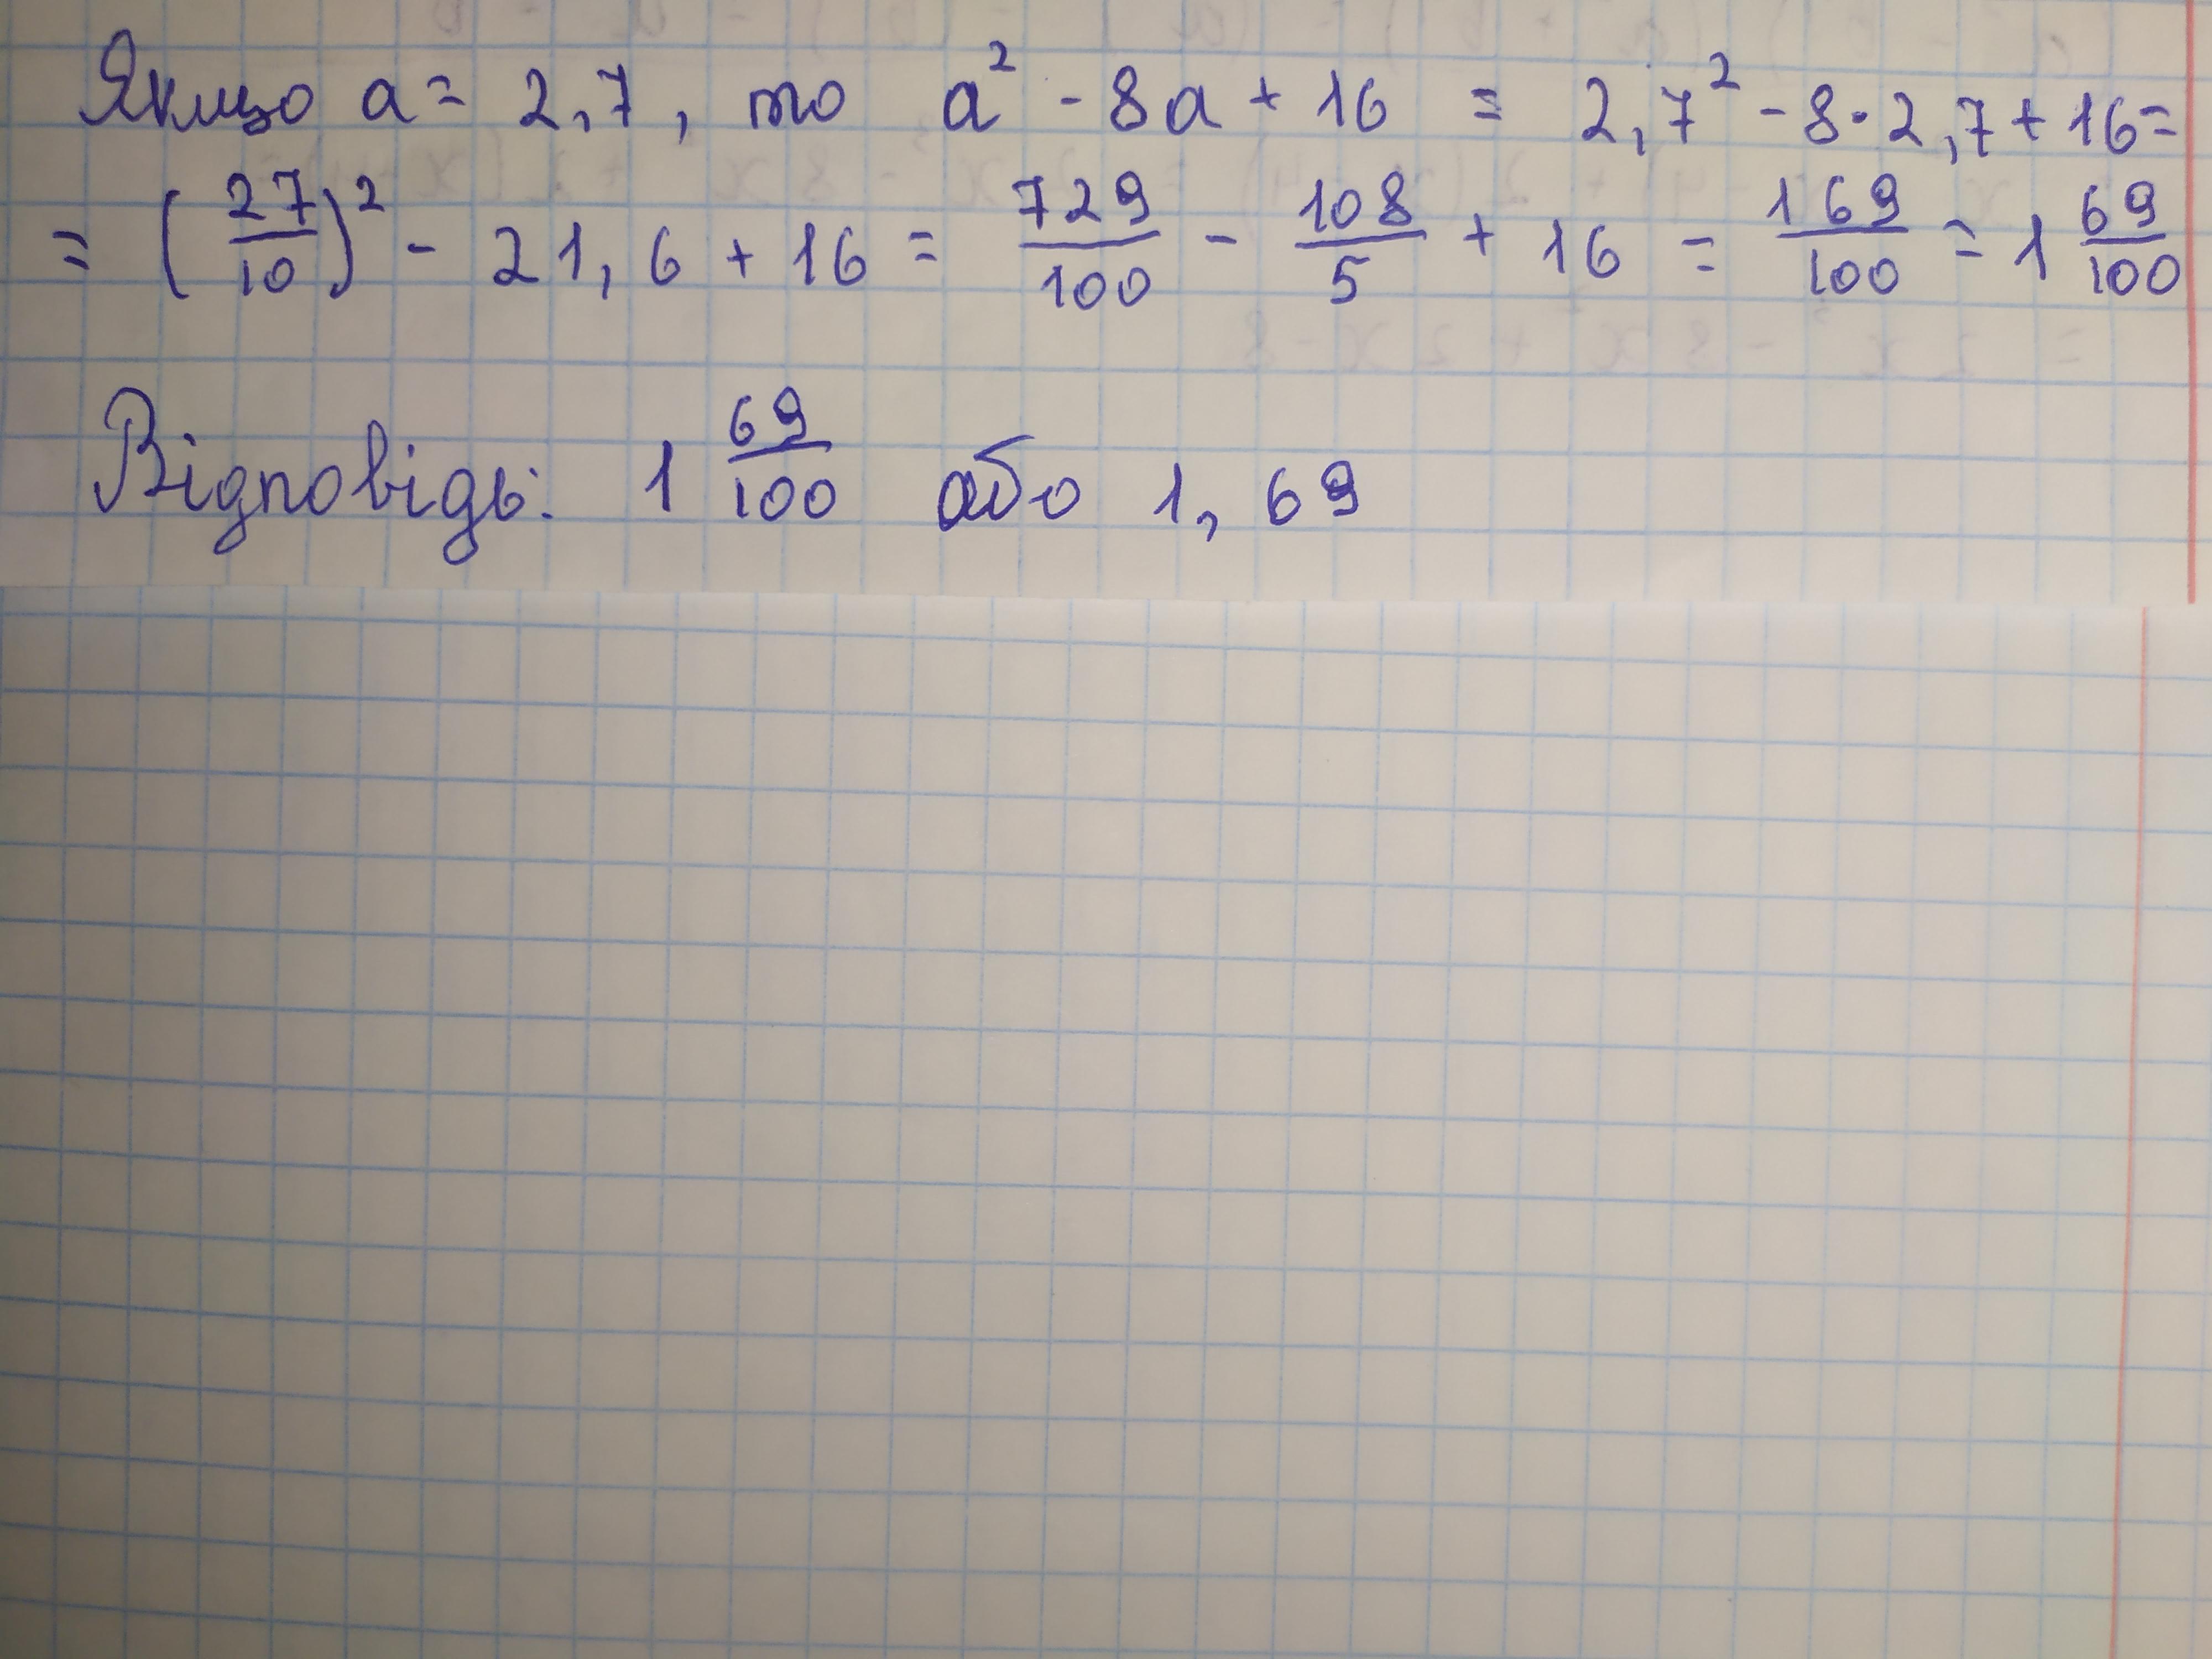 Якщо a = 2,7, то a² - 8a + 16 = 2,7² - 8·2,7 + 16 =
= (27/10)² - 21,6 + 16 = 729/100 - 108/5 + 16 = 169/100 = 1 69/100
Відповідь: 1 69/100 або 1,69